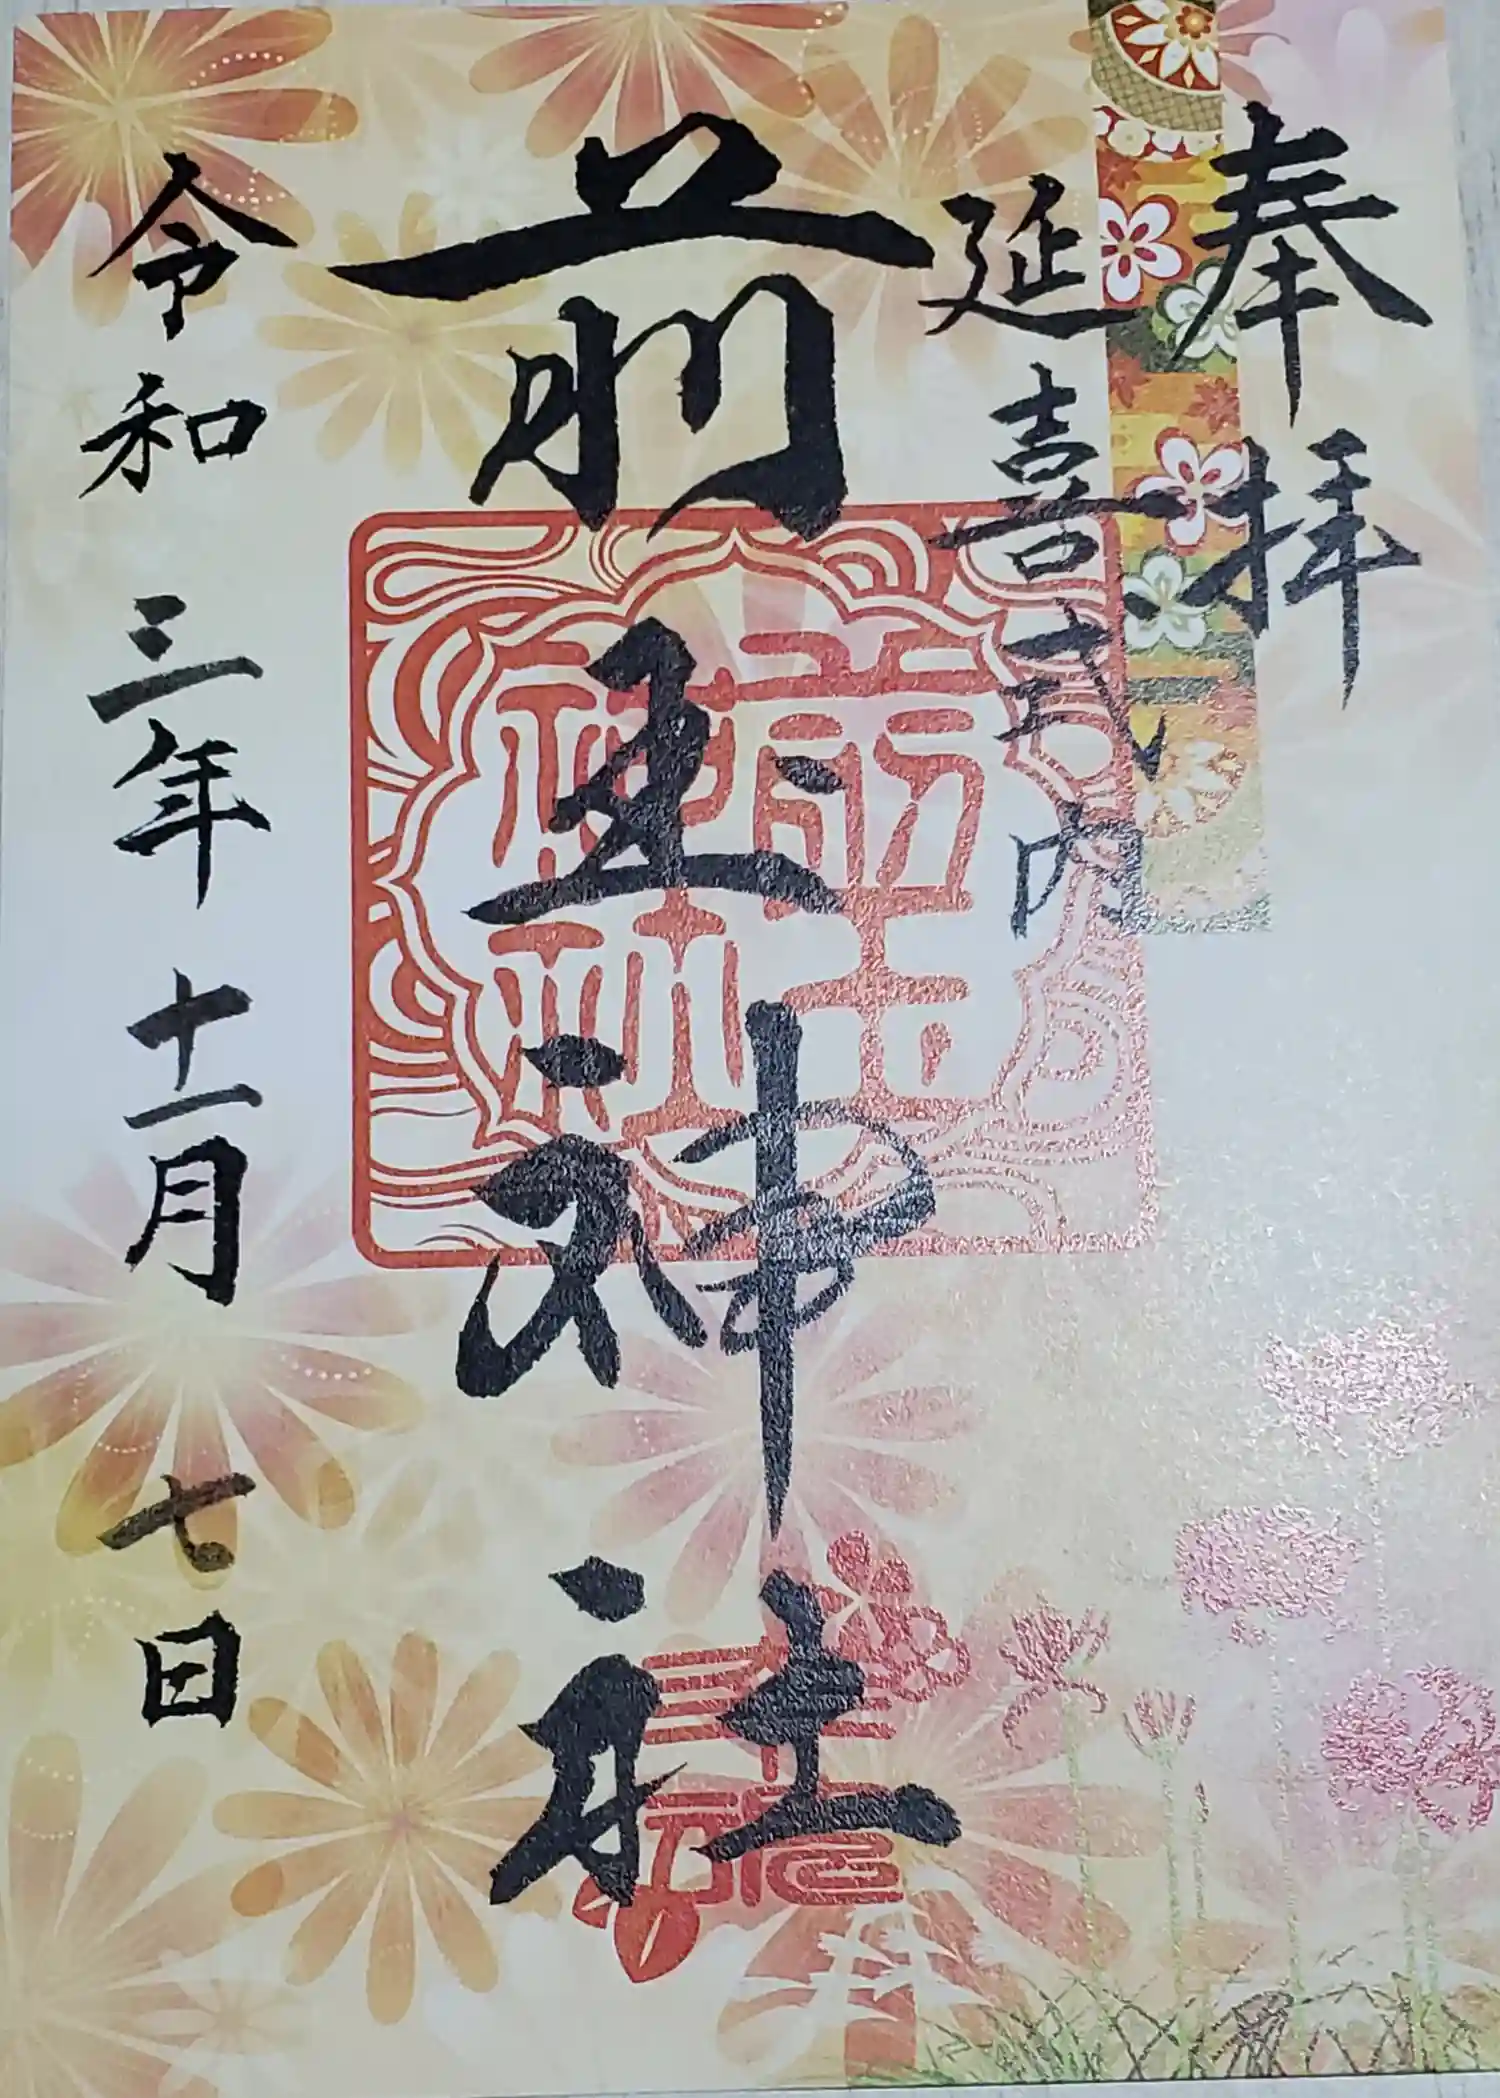 奉拝
延喜式内
前玉神社
前玉神社
令和三年十一月七日